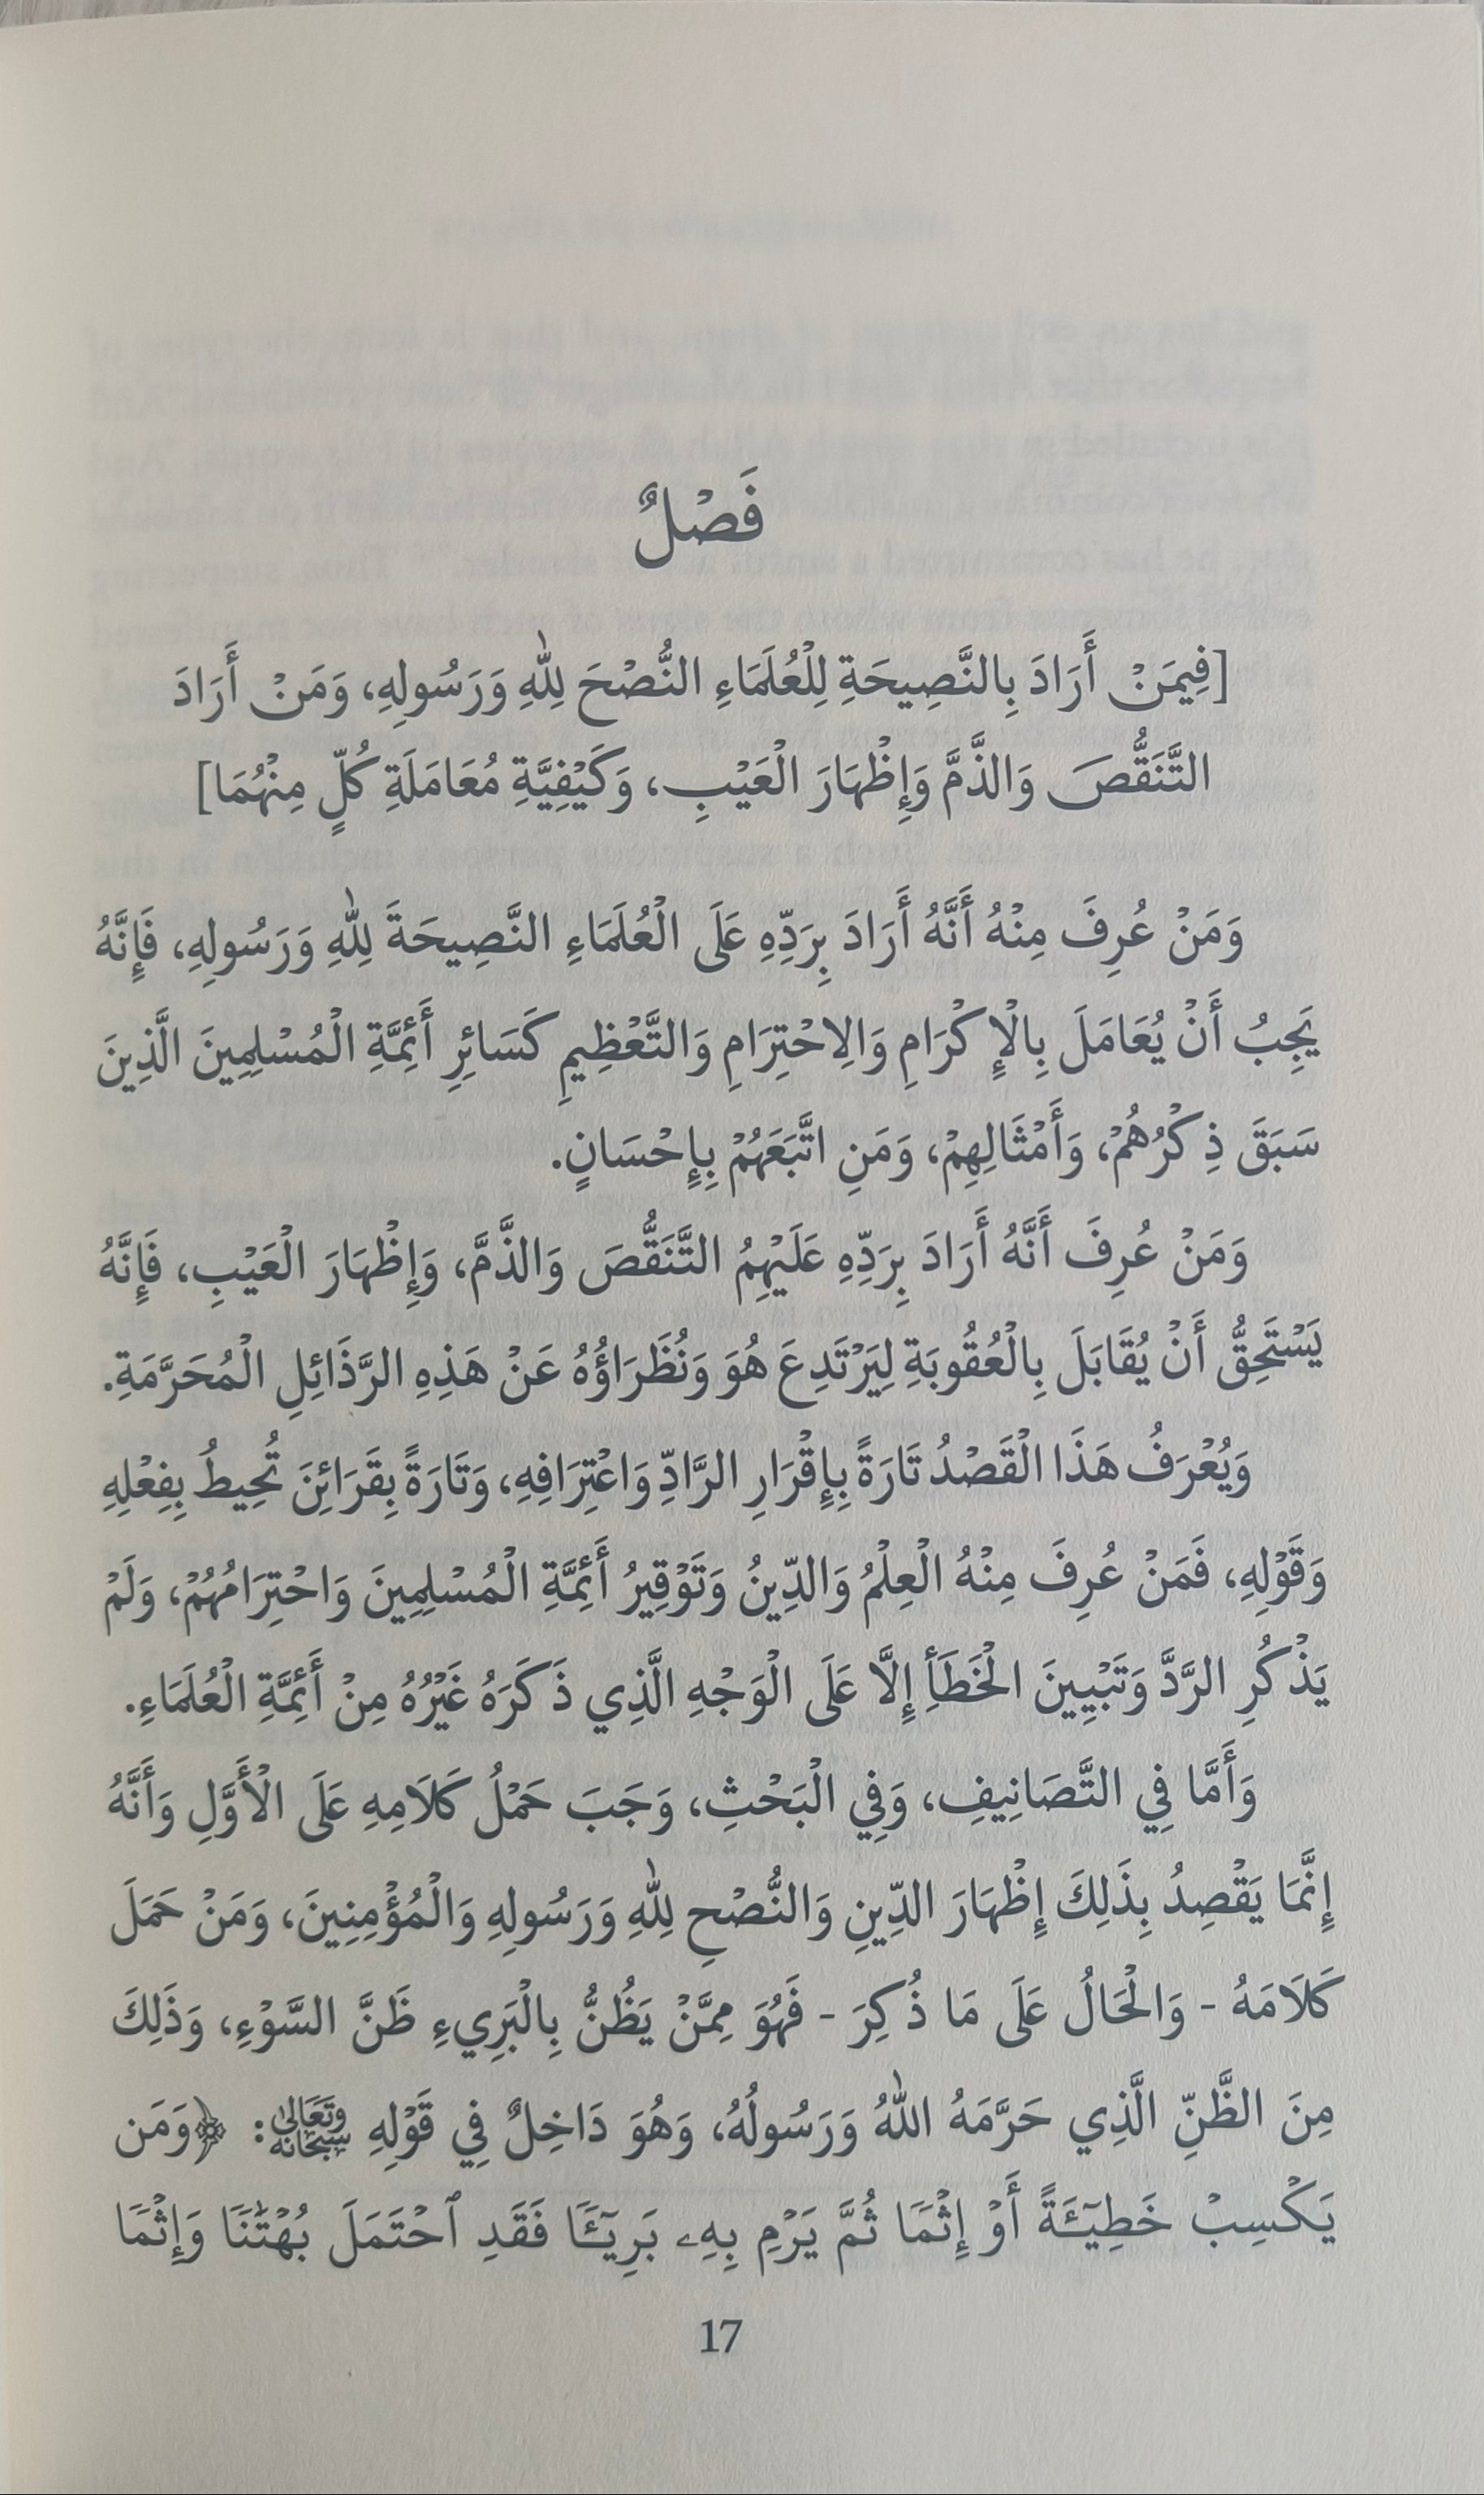 فَصْلٌ
[فِيمَنْ أَرَادَ بِالنَّصِيحَةِ لِلْعُلَمَاءِ النُّصْحَ لِلَّهِ وَرَسُولِهِ، وَمَنْ أَرَادَ
التَّنَقُّصَ وَالذَّمَّ وَإِظْهَارَ الْعَيْبِ، وَكَيْفِيَّةِ مُعَامَلَةِ كُلٍّ مِنْهُمَا]
وَمَنْ عُرِفَ مِنْهُ أَنَّهُ أَرَادَ بِرَدِّهِ عَلَى الْعُلَمَاءِ النَّصِيحَةَ لِلَّهِ وَرَسُولِهِ، فَإِنَّهُ
يَجِبُ أَنْ يُعَامَلَ بِالْإِكْرَامِ وَالِاحْتِرَامِ وَالتَّعْظِيمِ كَسَائِرِ أَئِمَّةِ الْمُسْلِمِينَ الَّذِينَ
سَبَقَ ذِكْرُهُمْ، وَأَمْثَالِهِمْ، وَمَنِ اتَّبَعَهُمْ بِإِحْسَانٍ.
وَمَنْ عُرِفَ أَنَّهُ أَرَادَ بِرَدِّهِ عَلَيْهِمُ التَّنَقُّصَ وَالذَّمَّ، وَإِظْهَارَ الْعَيْبِ، فَإِنَّهُ
يَسْتَحِقُّ أَنْ يُقَابَلَ بِالْعُقُوبَةِ لِيَرْتَدِعَ هُوَ وَنُظَرَاؤُهُ عَنْ هَذِهِ الرَّذَائِلِ الْمُحَرَّمَةِ.
وَيُعْرَفُ هَذَا الْقَصْدُ تَارَةً بِإِقْرَارِ الرَّادِّ وَاعْتِرَافِهِ، وَتَارَةً بِقَرَائِنَ تُحِيطُ بِفِعْلِهِ
وَقَوْلِهِ، فَمَنْ عُرِفَ مِنْهُ الْعِلْمُ وَالدِّينُ وَتَوْقِيرُ أَئِمَّةِ الْمُسْلِمِينَ وَاحْتِرَامُهُمْ، وَلَمْ
يَذْكُرِ الرَّدَّ وَتَبْيِينَ الْخَطَأِ إِلَّا عَلَى الْوَجْهِ الَّذِي ذَكَرَهُ غَيْرُهُ مِنْ أَئِمَّةِ الْعُلَمَاءِ.
وَأَمَّا فِي التَّصَانِيفِ، وَفِي الْبَحْثِ، وَجَبَ حَمْلُ كَلَامِهِ عَلَى الْأَوَّلِ وَأَنَّهُ
إِنَّمَا يَقْصِدُ بِذَلِكَ إِظْهَارَ الدِّينِ وَالنُّصْحِ لِلَّهِ وَرَسُولِهِ وَالْمُؤْمِنِينَ، وَمَنْ حَمَلَ
كَلَامَهُ - وَالْحَالُ عَلَى مَا ذُكِرَ - فَهُوَ مِمَّنْ يَظُنُّ بِالْبَرِيءِ ظَنَّ السَّوْءِ، وَذَلِكَ
مِنَ الظَّنِّ الَّذِي حَرَّمَهُ اللَّهُ وَرَسُولُهُ، وَهُوَ دَاخِلٌ فِي قَوْلِهِ سُبْحَانَهُ وَتَعَالَى: ﴿وَمَن
يَكْسِبْ خَطِيٓـَٔةً أَوْ إِثْمًا ثُمَّ يَرْمِ بِهِۦ بَرِيٓـًٔا فَقَدِ ٱحْتَمَلَ بُهْتَٰنًا وَإِثْمًا
17